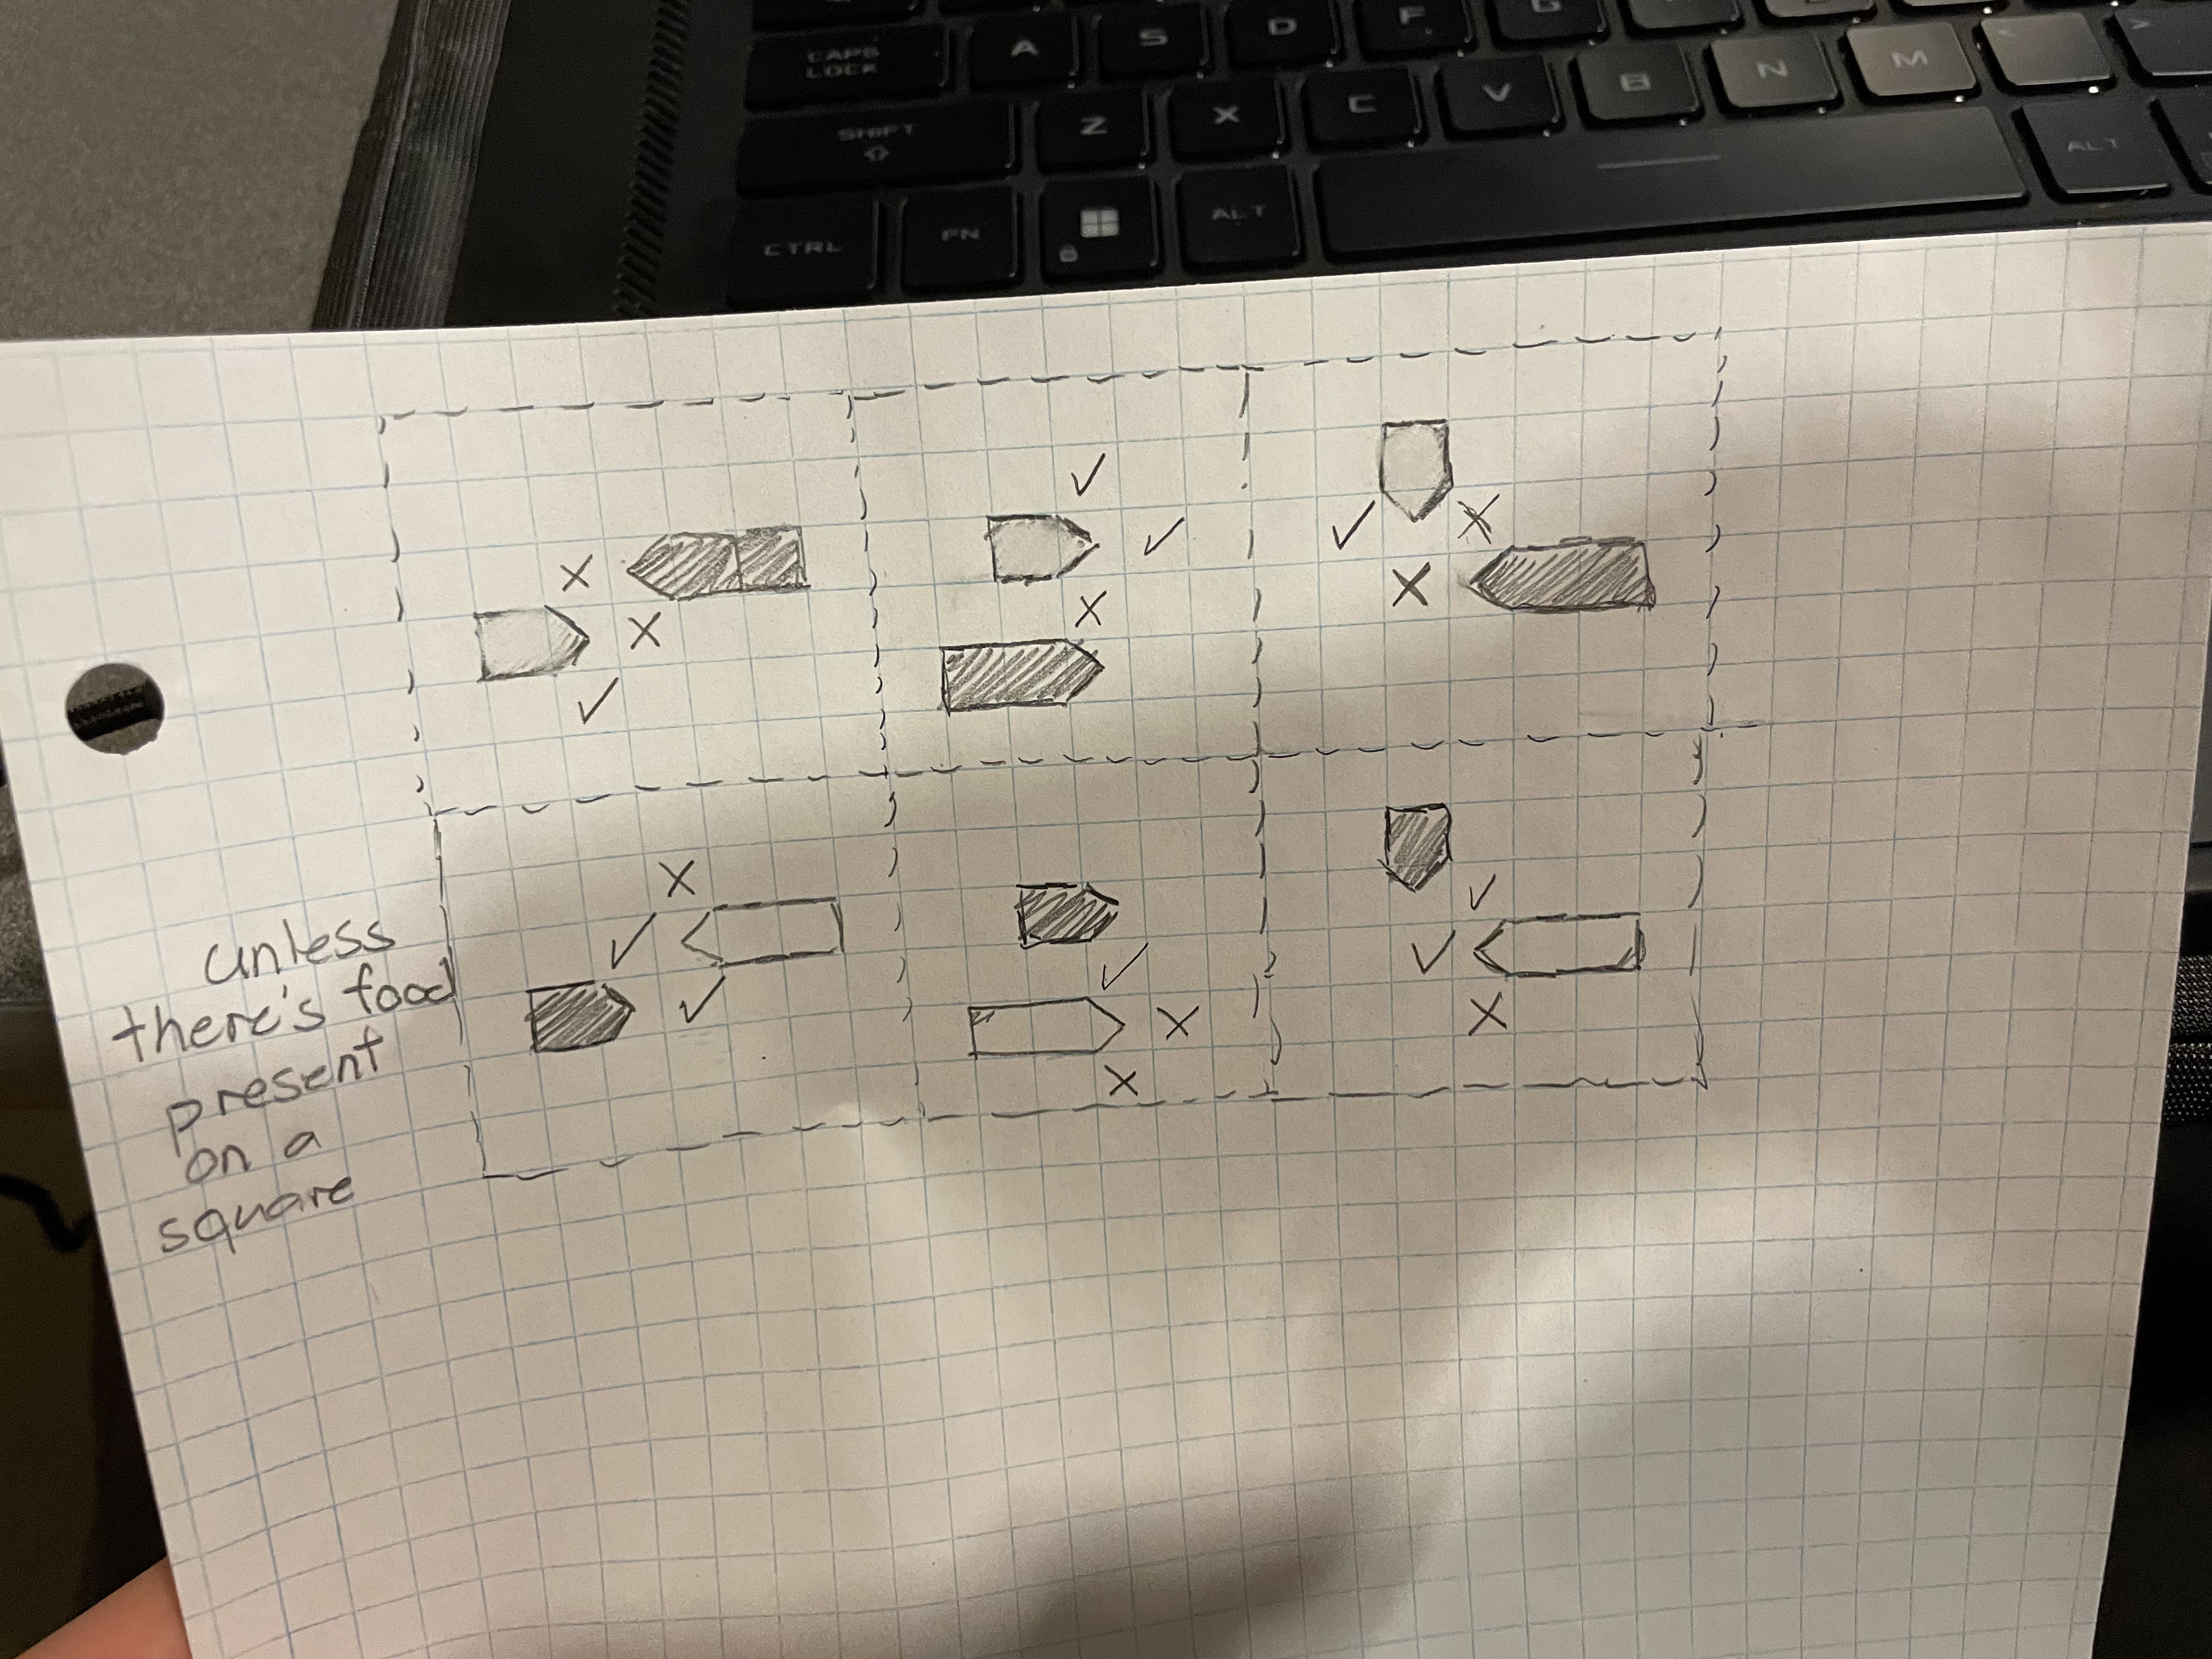 CAPS LOCK
A S D F G
SHIFT Z X C V B N M < >
CTRL FN ALT ALT
unless
there's food
present
on a
square